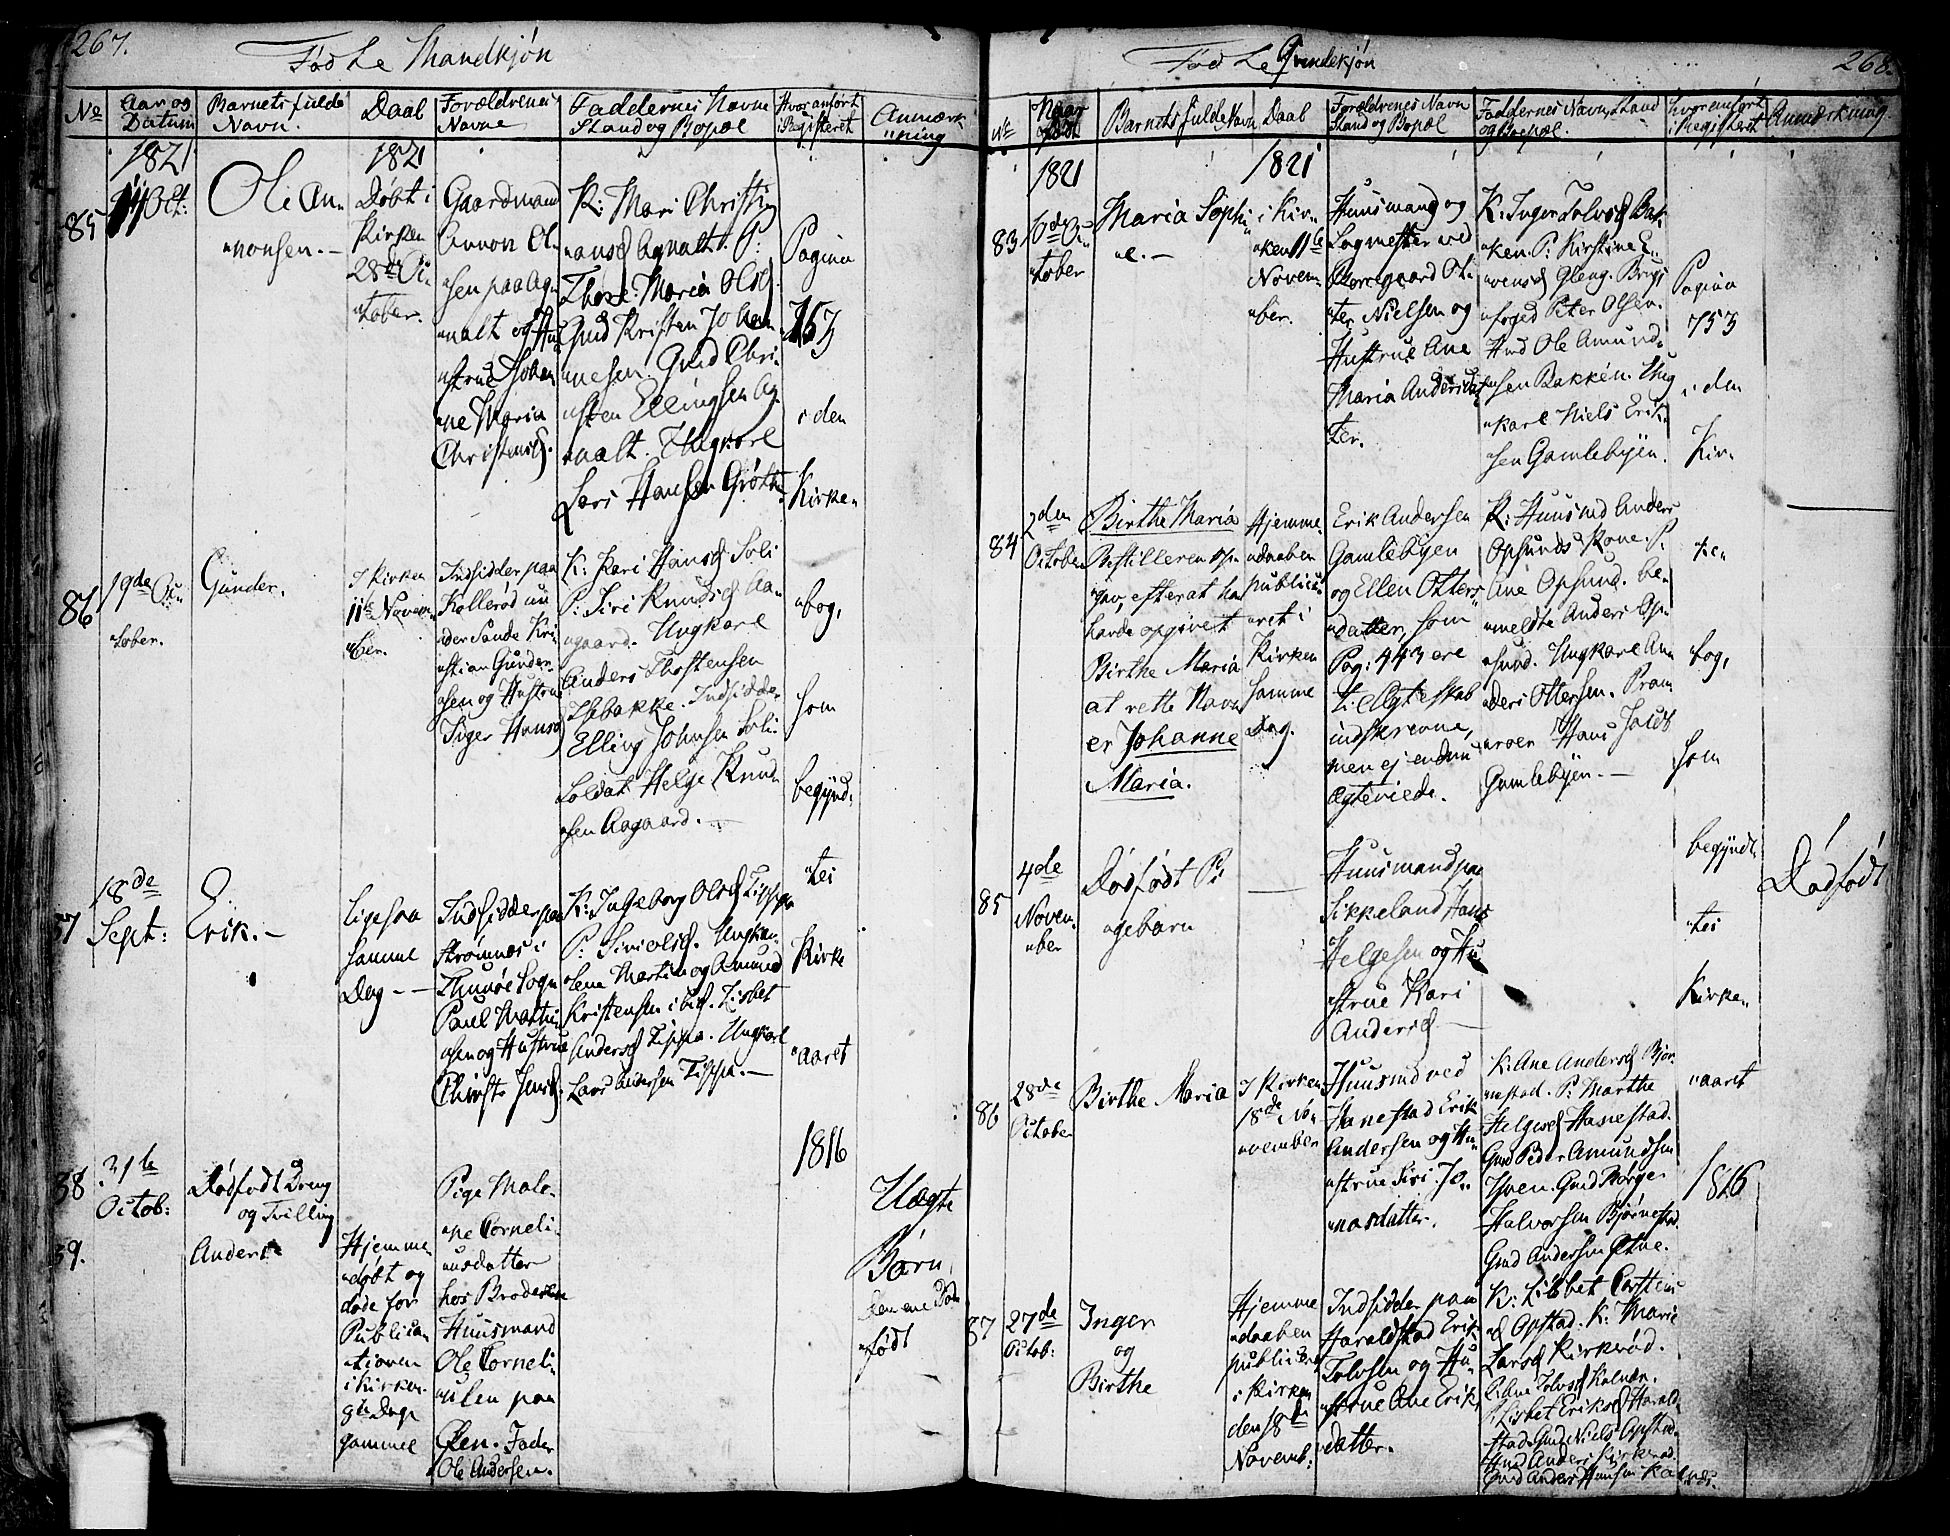 267.
Fødte Mandkjøn
No
Aar og
Datum
Barnets fulde
Navn.
Daab
Forældrenes
Navne
Faddernes Navne
Stand og Bopæl
Hvor anført
i Registeret
Anmærk
"ning
1821
1821
85
Oct:
Ole Am„
„monsen.—
Døbt i
Kirken
28de Oc„
„tober.
Gaardmand
Amon Ol„
„sen paa Ag„
„nalt og Hu„
„strue Johan„
„ne Maria
Christensd.
K: Mari Christi„
„ansd Agnalt. P:
Maria Olsd
Gmd Kristen Johan„
„nesen. Gmd Chri„
„sten Ellingsen Ag„
„nalt. Ungkarl
Lars Hansen
Pagina
753
i den
Kirke„
„bog,
som
begynd„
„tes
Kirke
„aaret
1816
86
19de Oc„
„tober.
Gunder.
I Kirken
11te Novem„
„ber.
Indsidder paa
Kollerød un„
„der Sande Kri„
„stian Gunder„
„sen og Hustrue
Inger Hansd
K: Kari Hansd Soli
P: Siri Knudsd Aa„
„gaard. Ungkarl
Anders Thostensen
Isebakke. Indsidder
Elling Johnsen Soli
Soldat Helge Knud„
„sen Aagaard.—
87
18de
Sept:
Erik.—
Ligesaa
samme
Dag—
Indsidder paa
Strømnæs i
Thunøe Sogn
Paul Mathi„
„sen og Hustrue
Christi Jensd.
K: Ingeborg Olsd Tippa
P: Siri Olsd. Ungkar„
„lene Martin og Amund
Kristensen ibid. Lisbet
Andersd Tippa. Ungkarl
Lars Andersen Tippa.—
88
31te
Octob:
Dødfødt Dreng
og Tvilling
Pige Male„
„ne Corneli„
„usdatter
hos Broderen
Huusmand
Ole Corneli„
„usen paa
Øen. Fader
Ole Andersen.
Uægte
Børn,
den ene Død„
„født
89.
Anders
Hjemme
„døbt og
døde før
Publica„
„tionen
i Kirken
gl. Dage
gammel
268.
Fødte Qvindekjøn
No
Naar
født
Barnets fulde Navn
Daab
Forældrenes Navn
Stand og Bopæl
Faddernes Navn, Stand
og Bopæl.
hvor anført
i Registeret
Anmærkning.
1821
1821
83
6de Oc„
„tober
Maria Sophi„
„e.—
i Kir„
„ken 11te
Novem„
„ber.
Huusmand og
Sagmester ved
Borregaard Ot„
„ter Nielsen og
Hustrue Ane
Maria Andersdat„
ter.
K: Inger Tolvsd Bak„
„ken. P: Kirstine E„
„vensd Gleng. Brugs
„foged Peter Olsen.
Hmd Ole Amund„
„sen Bakken. Ung
„karl Niels Erik„
sen Gamlebyen.
Pagina
753
i den
Kir„
„ke„
„bog,
som
begyndt„
„tes
Kirke„
„aaret
1816
84
2den
October
Birthe Maria
Bestilleren op„
„gav, efter at ha
havde opgivet
Birthe Maria
at rette Navn
er Johanne
Maria.
Hjemme„
„daaben
publice„
„ret i
Kirken
samme
Dag.
Erik Andersen
Gamlebyen
og Ellen Otters„
„datter, som
Pag: 443 ere
til Ægteskab
indskrevne,
men ej endnu
Ægteviede.
K: Huusmd Anders
Opsunds Kone. P:
Ane Opsund. be„
„meldte Anders Op„
„sund. Ungkarl An„
„ders Ottersen. Pram
„roer Hans Jacobs
Gamlebyen.—
85
4de
Novem„
„ber
Dødfødt Pi„
„gebarn
Huusmand paa
Sikkeland Hans
Helgesen og Hu„
„strue Kari
Andersd—
Dødfødt
86
28de
October
Birthe Maria
I Kirken
18de No„
„vember
Huusmd ved
Hanestad Erik
Andersen og Hu„
„strue Siri Jo„
„nasdatter.
K: Ane Andersd Bjør„
„nestad. P: Marthe
Helgesd Hanestad.
Gmd Peder Amundsen
Gmd Børger
Halvorsen Bjørnestad.
Gmd Andersen
87
27de
Octob:
Inger
og
Birthe
Hjemme
„daaben
publiceret
i Kirken
den 18de
Novemb:
Indsidder paa
Haraldstad Erik
Tolvsen og Hu„
„strue Ane Eriks„
„datter.
K: Lisbet Torstens
d Opstad. K: Marie
Larsd Kirkerød.
Tolvsd Kalnæs.
P: Lisbet Eriksd Harald
„stad. Gmd Niels Opstad.
Hmd Anders Kirkerød.
Gmd Anders Hansen Kalnæs.